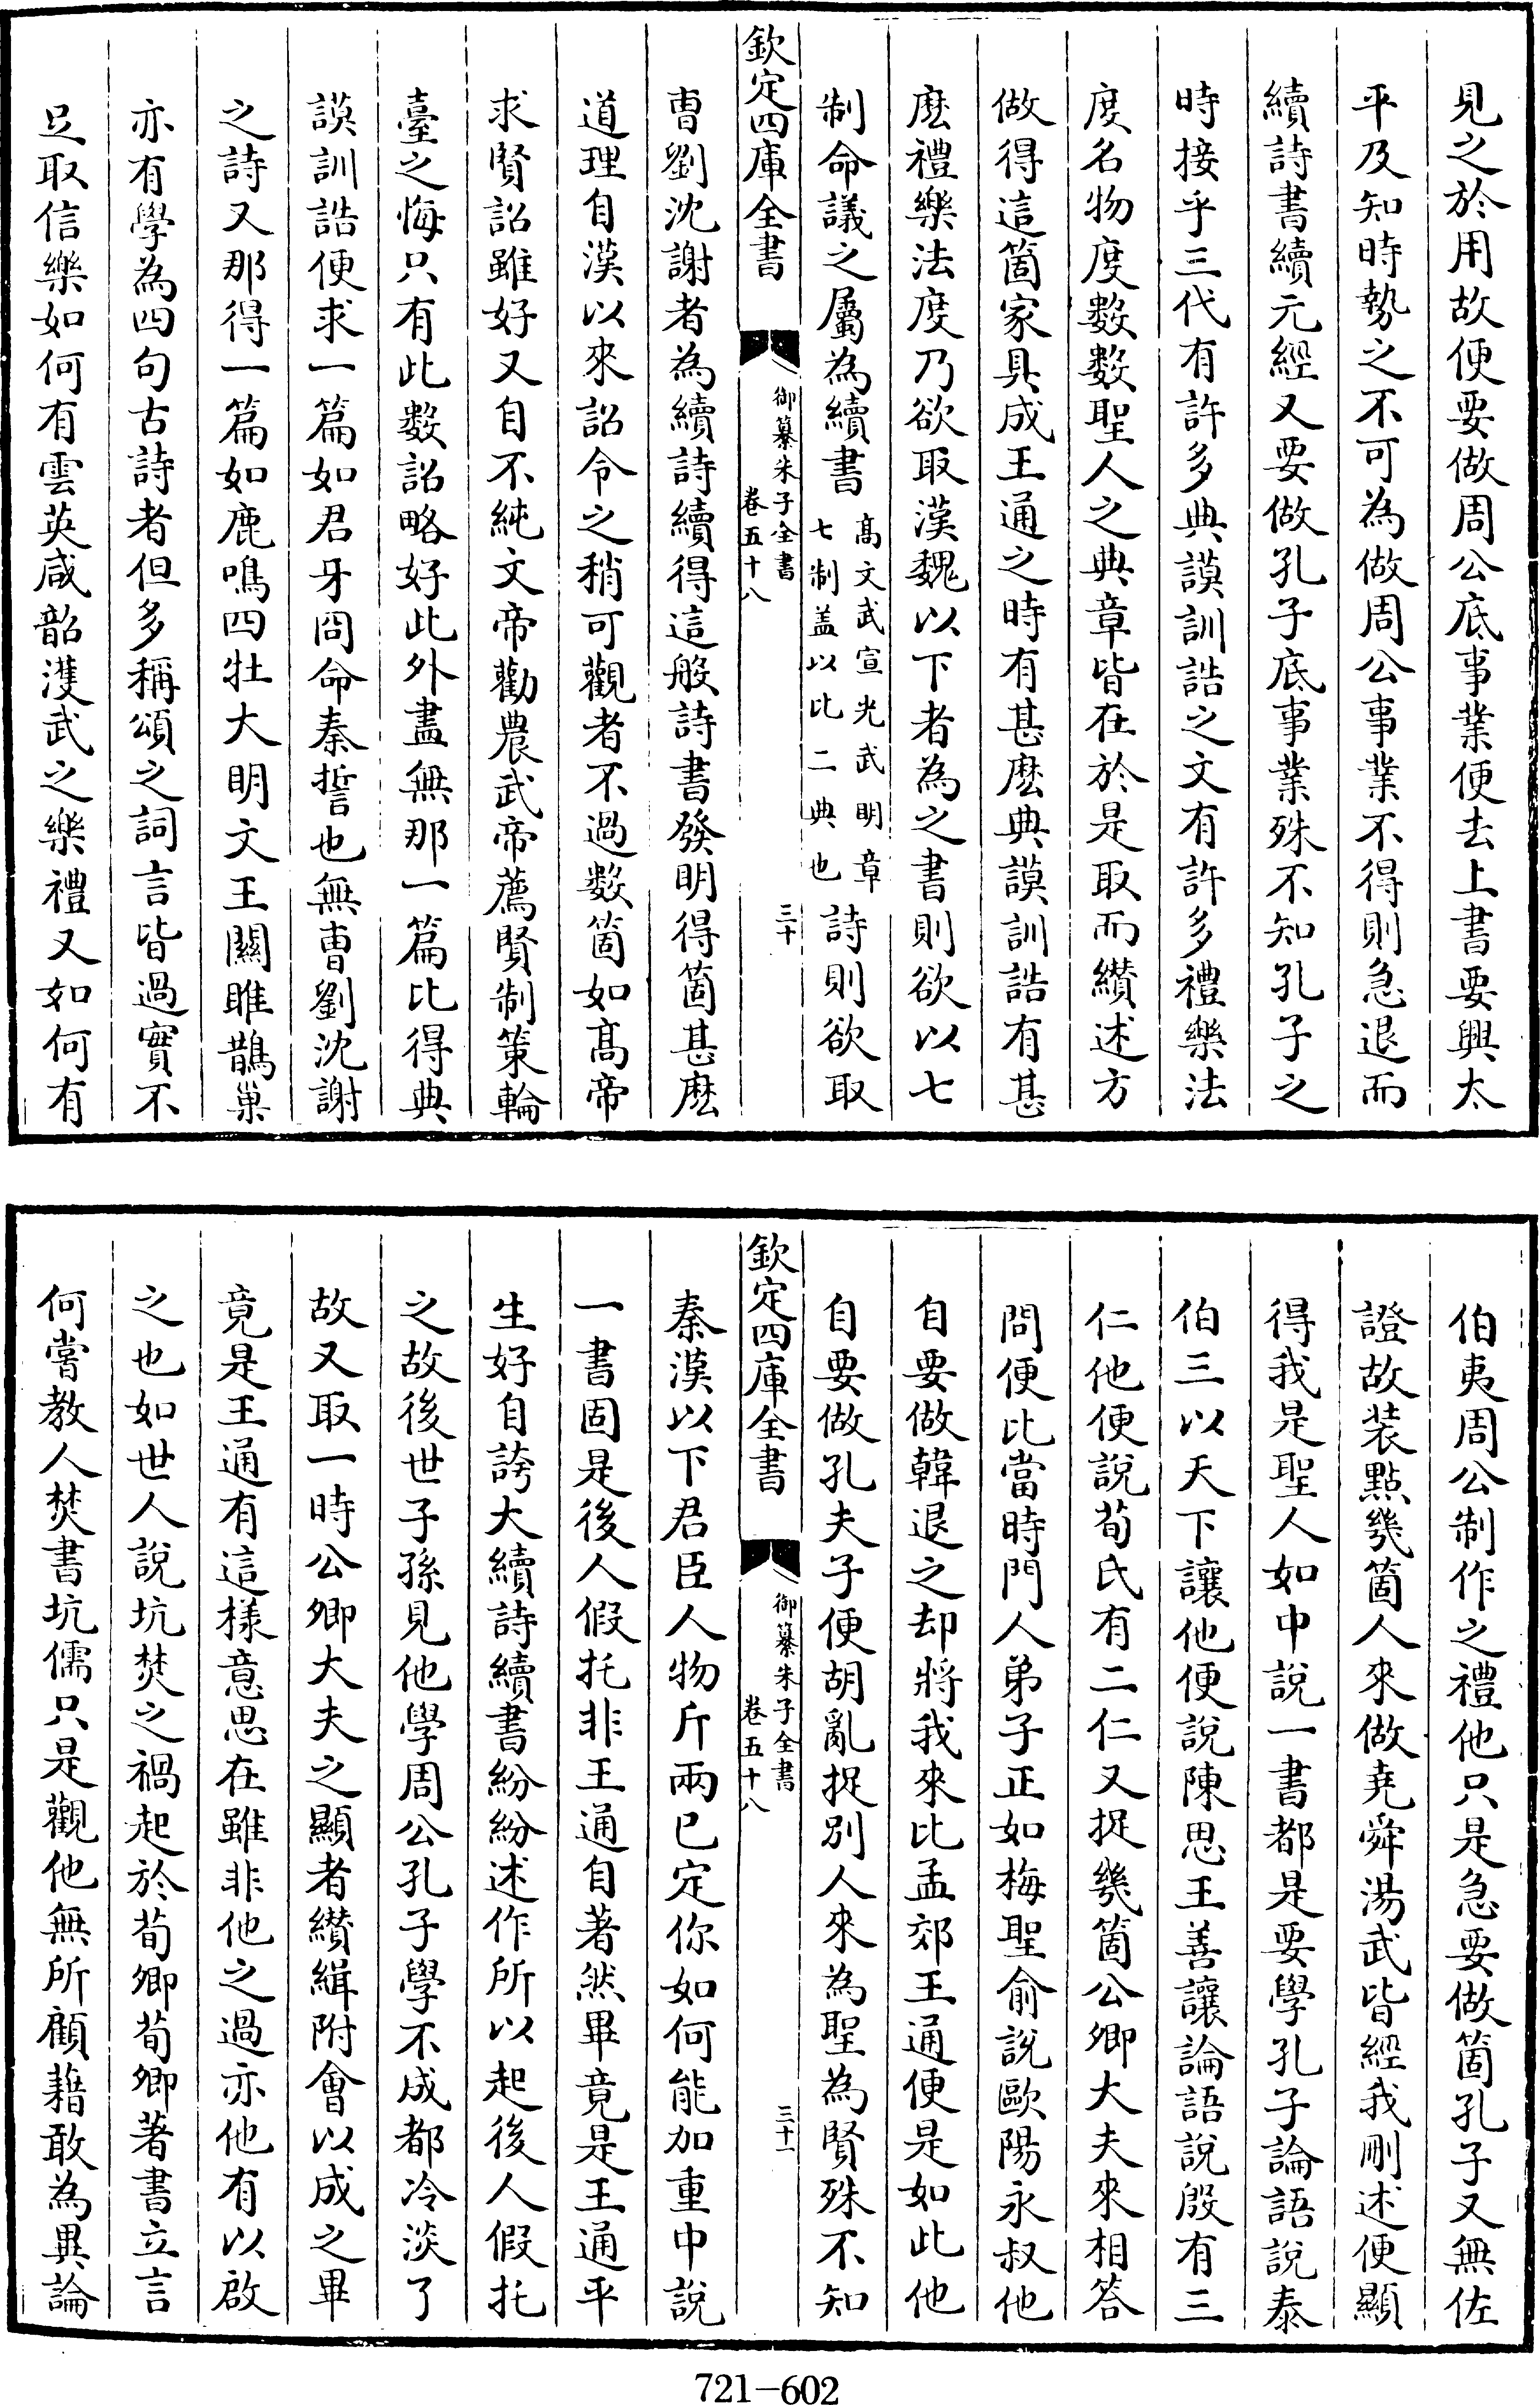 見之於用故便要做周公底事業便去上書要興太
平及知時勢之不可為做周公事業不得則急退而
續詩書續元經又要做孔子底事業殊不知孔子之
時接乎三代有許多典謨訓誥之文有許多禮樂法
度名物度數數聖人之典章皆在於是取而纘述方
做得這箇家具成王通之時有甚麽典謨訓誥有甚
麽禮樂法度乃欲取漢魏以下者為之書則欲以七
制命議之屬為續書高文武宣光武明章七制盖以比二典也詩則欲取
欽定四庫全書
御纂朱子全書
卷五十八
三十
曹劉沈謝者為續詩續得這般詩書發明得箇甚麽
道理自漢以來詔令之稍可觀者不過數箇如高帝
求賢詔雖好又自不純文帝勸農武帝薦賢制策輪
臺之悔只有此數詔略好此外盡無那一篇比得典
謨訓誥便求一篇如君牙冏命秦誓也無曹劉沈謝
之詩又那得一篇如鹿鳴四牡大明文王關雎鵲巢
亦有學為四句古詩者但多稱頌之詞言皆過實不
足取信樂如何有雲英咸韶濩武之樂禮又如何有
伯夷周公制作之禮他只是急要做箇孔子又無佐
證故装點幾箇人來做堯舜湯武皆經我刪述便顯
得我是聖人如中說一書都是要學孔子論語說泰
伯三以天下讓他便說陳思王善讓論語說殷有三
仁他便說荀氏有二仁又捉幾箇公卿大夫來相答
問便比當時門人弟子正如梅聖俞說歐陽永叔他
自要做韓退之却將我來比孟郊王通便是如此他
自要做孔夫子便胡亂捉别人來為聖為賢殊不知
欽定四庫全書
御纂朱子全書
卷五十八
三十一
秦漢以下君臣人物斤兩已定你如何能加重中說
一書固是後人假托非王通自著然畢竟是王通平
生好自誇大續詩續書紛紛述作所以起後人假托
之故後世子孫見他學周公孔子學不成都冷淡了
故又取一時公卿大夫之顯者纘緝附會以成之畢
竟是王通有這樣意思在雖非他之過亦他有以啟
之也如世人說坑焚之禍起於荀卿荀卿著書立言
何嘗教人焚書坑儒只是觀他無所顧藉敢為異論
721-602